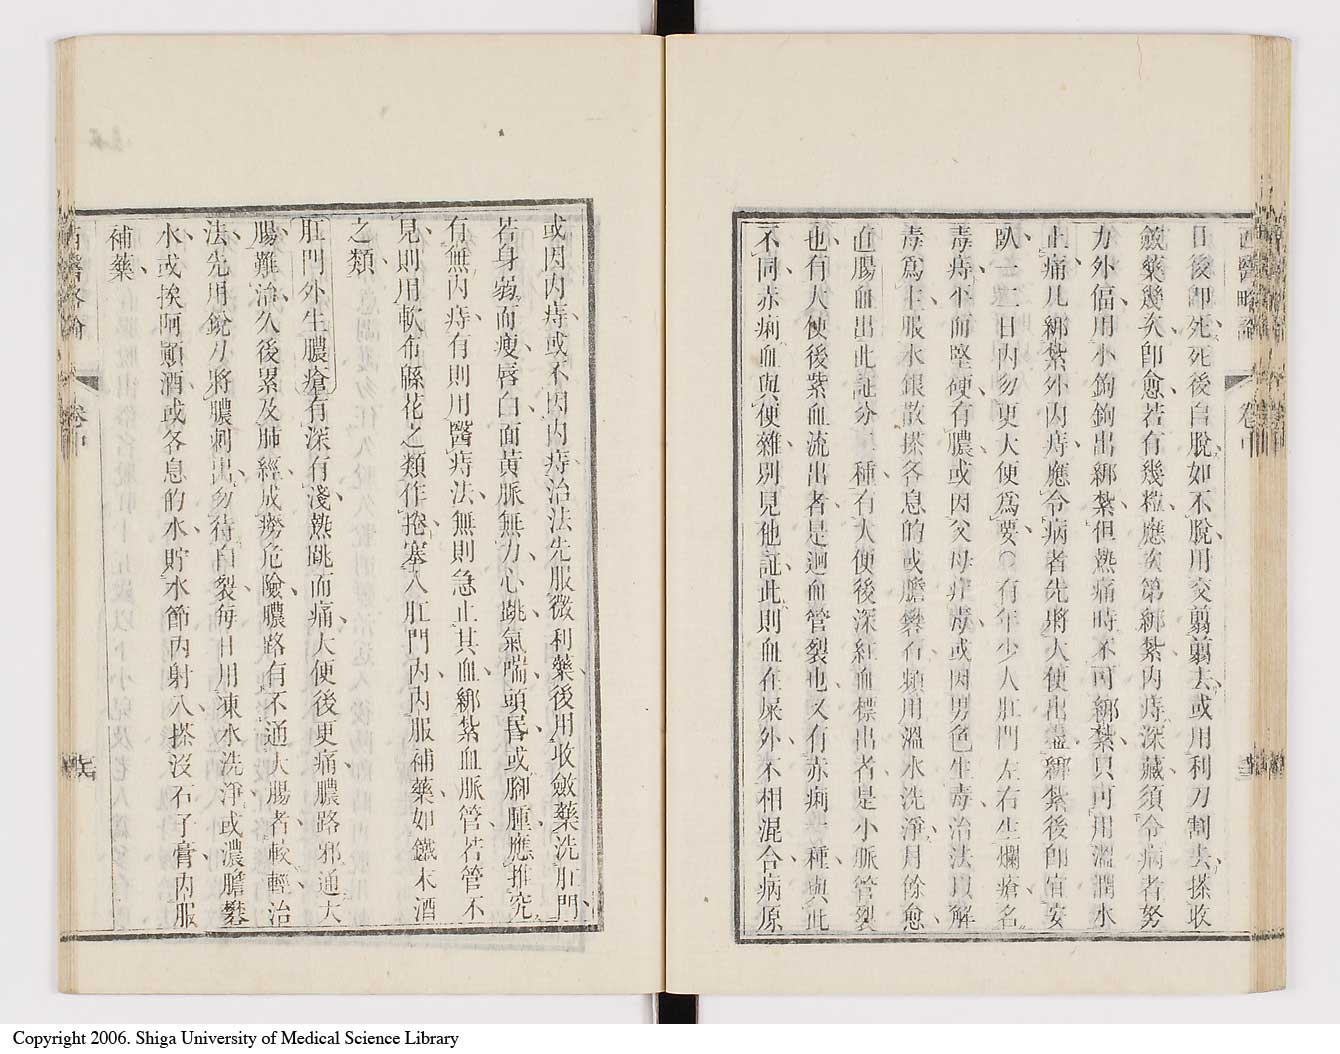 西醫略論 卷中
日後卽死死後自脫如不脫用交剪剪去或用利刀割去搽收
斂藥幾次卽愈若有幾粒應次第綁紮內痔深藏須令病者努
力外偪用小鉤鉤出綁紮但熱痛時不可綁紮只可用溫潤水
止痛凡綁紮外內痔應令病者先將大便出盡綁紮後卽宜安
臥一二日內勿更大便爲要○有年少人肛門左右生爛瘡名
毒痔平而堅硬有膿或因父母疳毒或因男色生毒治法以解
毒爲主服水銀散搽各息的或膽礬石頻用溫水洗淨月餘愈
直腸血出此証分二種有大便後深紅血標出者是小脈管裂
也有大便後紫血流出者是迴血管裂也又有赤痢一種與此
不同赤痢血與便雜別見他証此則血在屎外不相混合病原
或因內痔或不因內痔治法先服微利藥後用收斂藥洗肛門
若身弱而瘦唇白面黃脈無力心跳氣喘頭暈或腳腫應推究
有無內痔有則用醫痔法無則急止其血綁紮血脈管若管不
見則用軟布緜花之類作捲塞入肛門內內服補藥如鐵木酒
之類
肛門外生膿瘡有深有淺熱跳而痛大便後更痛膿路邪通大
腸難治久後累及肺經成癆危險膿路有不通大腸者較輕治
法先用銳刀將膿刺出勿待自裂每日用凍水洗淨或濃膽礬
水或挨阿顚酒或各息的水貯水節內射入搽沒石子膏內服
補藥
卷中